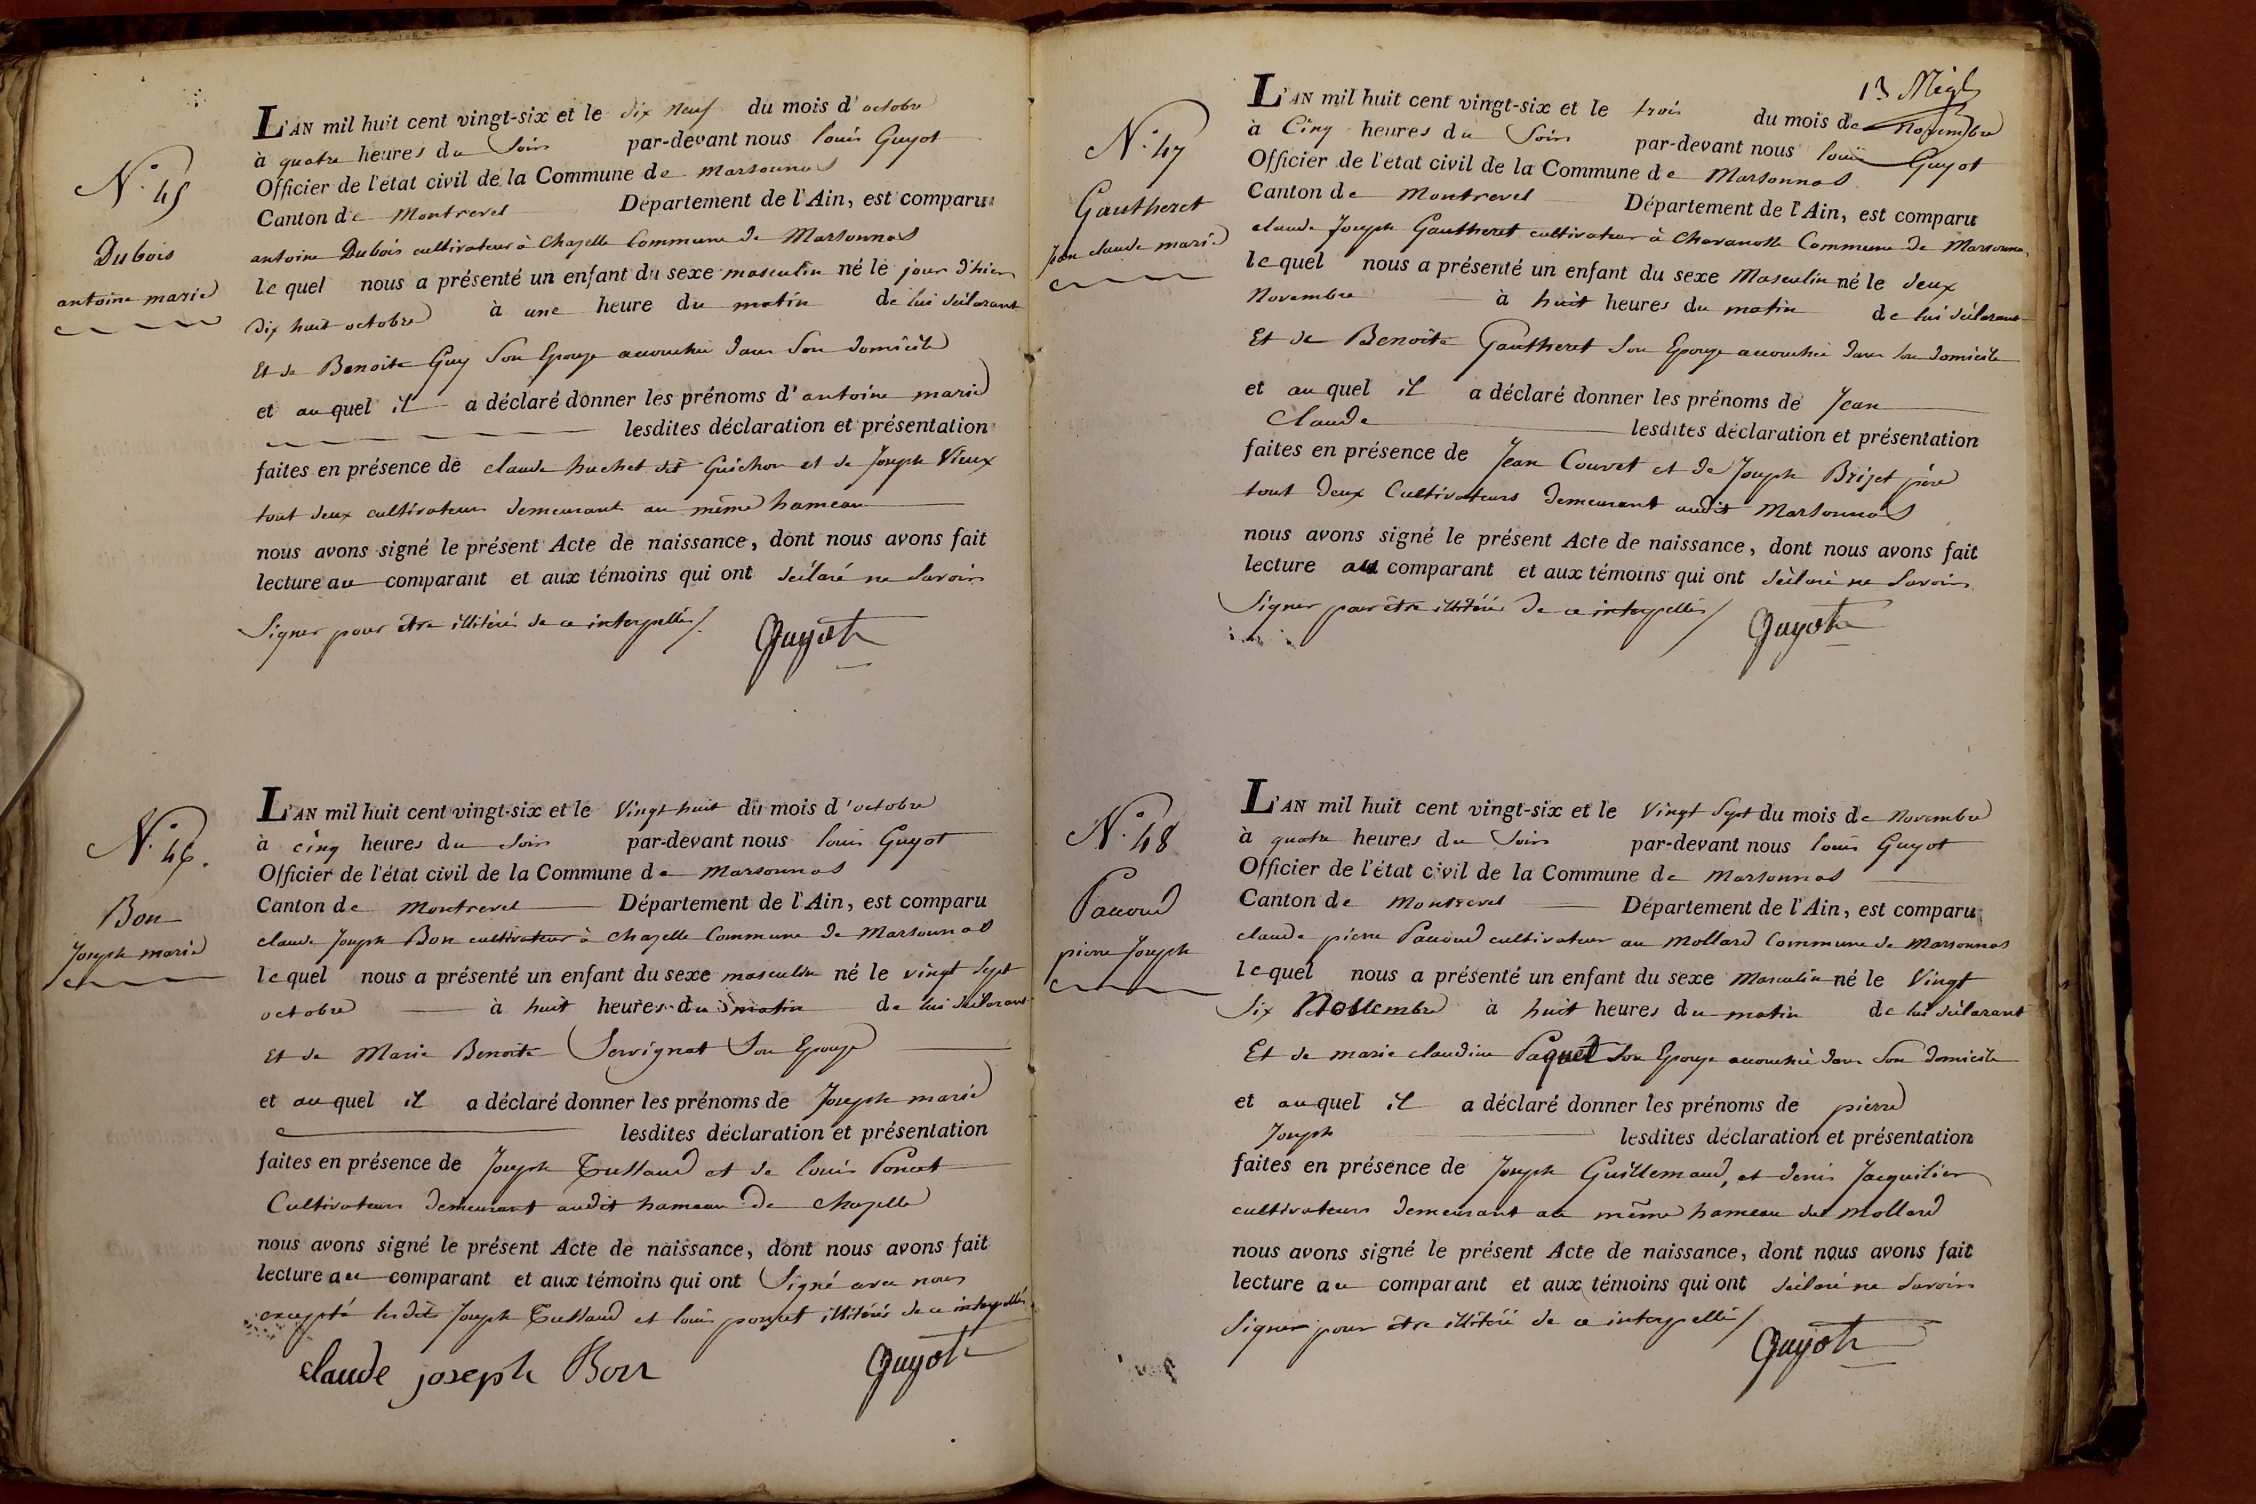 N.° 45
Dubois
antoine marie
L'AN mil huit cent vingt-six et le dix neuf du mois d'octobre
à quatre heures du Soir par-devant nous louis Guyot
Officier de l'état civil de la Commune de Marsonnas
Canton de Montrevel Département de l'Ain, est comparu
antoine Dubois cultivateur à Chazelle Commune de Marsonnas
lequel nous a présenté un enfant du sexe masculin né le jour d'hier
dix huit octobre à une heure du matin de lui déclarant
Et de Benoite Guy Son Epouse accouchée dans Son domicile
et auquel il a déclaré donner les prénoms d'antoine marie
lesdites déclaration et présentation
faites en présence de claude huchet dit Guichon et de Joseph Vieux
tout deux cultivateurs demeurant au même hameau
nous avons signé le présent Acte de naissance, dont nous avons fait
lecture au comparant et aux témoins qui ont déclaré ne Savoir
Signer pour être illitéré de ce interpellés /.
Guyot
N.° 46.
Bon
Joseph marie
L'AN mil huit cent vingt-six et le Vingt huit du mois d'octobre
à cinq heures du Soir par-devant nous louis Guyot
Officier de l'état civil de la Commune de Marsonnas
Canton de Montrevel Département de l'Ain, est comparu
claude Joseph Bon cultivateur à Chazelle Commune de Marsonnas
lequel nous a présenté un enfant du sexe masculin né le vingt Sept
octobre à huit heures du matin de lui déclarant
Et de Marie Benoite Servignat Son Epouse
et auquel il a déclaré donner les prénoms de Joseph marie
lesdites déclaration et présentation
faites en présence de Joseph Tulland et de louis Poncet
Cultivateurs demeurant audit hameau de Chazelle
nous avons signé le présent Acte de naissance, dont nous avons fait
lecture au comparant et aux témoins qui ont Signé avec nous
excepté lesdits Joseph Tulland et louis poncet illitérés de ce interpellés
claude joseph Bon Guyot
13
N.° 47
Gautheret
Jean claude marie
L'AN mil huit cent vingt-six et le trois du mois de Novembre
à Cinq heures du Soir par-devant nous louis Guyot
Officier de l'état civil de la Commune de Marsonnas
Canton de Montrevel Département de l'Ain, est comparu
claude Joseph Gautheret cultivateur à Chavanosse Commune de Marsonnas
lequel nous a présenté un enfant du sexe Masculin né le deux
Novembre à huit heures du matin de lui déclarant
Et de Benoite Gautheret Son Epouse accouchée dans Son domicile
et auquel il a déclaré donner les prénoms de Jean
Claude lesdites déclaration et présentation
faites en présence de Jean Couvet et de Joseph Brijet père
tout deux Cultivateurs demeurant audit Marsonnas
nous avons signé le présent Acte de naissance, dont nous avons fait
lecture au comparant et aux témoins qui ont déclaré ne Savoir
Signer pour être illitérés de ce interpellés /
Guyot
N.° 48
Pacoud
pierre Joseph
L'AN mil huit cent vingt-six et le Vingt Sept du mois de Novembre
à quatre heures du Soir par-devant nous louis Guyot
Officier de l'état civil de la Commune de Marsonnas
Canton de Montrevel Département de l'Ain, est comparu
claude pierre Pacoud cultivateur au Mollard Commune de Marsonnas
lequel nous a présenté un enfant du sexe Masculin né le Vingt
Six Novembre à huit heures du matin de lui déclarant
Et de marie claudine Paquet Son Epouse accouchée dans Son domicile
et auquel il a déclaré donner les prénoms de pierre
Joseph lesdites déclaration et présentation
faites en présence de Joseph Guillemaud, et denis Jacquilier
cultivateurs demeurant au même hameau du Mollard
nous avons signé le présent Acte de naissance, dont nous avons fait
lecture au comparant et aux témoins qui ont déclaré ne Savoir
Signer pour être illitéré de ce interpellés /
Guyot